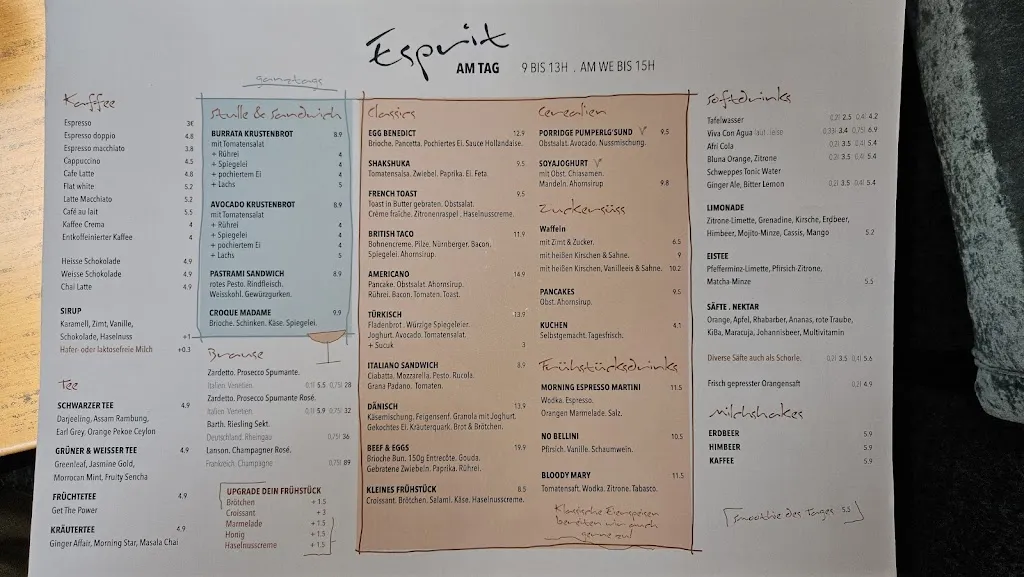 Esprit
AM TAG 9 BIS 13H . AM WE BIS 15H
Kaffee
Espresso 3€
Espresso doppio 4.8
Espresso macchiato 3.8
Cappuccino 4.5
Cafe Latte 4.8
Flat white 5.2
Latte Macchiato 5.2
Café au lait 5.5
Kaffee Crema 4
Entkoffeinierter Kaffee 4
Heisse Schokolade 4.9
Weisse Schokolade 4.9
Chai Latte 4.9
SIRUP
Karamell, Zimt, Vanille,
Schokolade, Haselnuss +1
Hafer- oder laktosefreie Milch +0.3
Tee
SCHWARZER TEE 4.9
Darjeeling, Assam Rambung,
Earl Grey, Orange Pekoe Ceylon
GRÜNER & WEISSER TEE 4.9
Greenleaf, Jasmine Gold,
Morrocan Mint, Fruity Sencha
FRÜCHTETEE 4.9
Get The Power
KRÄUTERTEE 4.9
Ginger Affair, Morning Star, Masala Chai
ganztags
Stulle & Sandwich
BURRATA KRUSTENBROT 8.9
mit Tomatensalat
+ Rührei 4
+ Spiegelei 4
+ pochiertem Ei 4
+ Lachs 5
AVOCADO KRUSTENBROT 8.9
mit Tomatensalat
+ Rührei 4
+ Spiegelei 4
+ pochiertem Ei 4
+ Lachs 5
PASTRAMI SANDWICH 8.9
rotes Pesto. Rindfleisch.
Weisskohl. Gewürzgurken.
CROQUE MADAME 9.9
Brioche. Schinken. Käse. Spiegelei.
Brause
Zardetto. Prosecco Spumante.
Italien Venetien 0,1l 5.5 0,75l 28
Zardetto. Prosecco Spumante Rosé.
Italien. Venetien 0,1l 5.9 0,75l 32
Barth. Riesling Sekt.
Deutschland. Rheingau 0,75l 36
Lanson. Champagner Rosé.
Frankreich. Champagne 0,75l 89
UPGRADE DEIN FRÜHSTÜCK
Brötchen +1.5
Croissant +3
Marmelade +1.5
Honig +1.5
Haselnusscreme +1.5
Classics
EGG BENEDICT 12.9
Brioche. Pancetta. Pochiertes Ei. Sauce Hollandaise.
SHAKSHUKA 9.5
Tomatensalsa. Zwiebel. Paprika. Ei. Feta.
FRENCH TOAST 9.5
Toast in Butter gebraten. Obstsalat.
Crème fraîche. Zitronenraspel . Haselnusscreme.
BRITISH TACO 11.9
Bohnencreme. Pilze. Nürnberger. Bacon.
Spiegelei. Ahornsirup.
AMERICANO 14.9
Pancake. Obstsalat. Ahornsirup.
Rührei. Bacon. Tomaten. Toast.
TÜRKISCH 13.9
Fladenbrot . Würzige Spiegeleier.
Joghurt. Avocado. Tomatensalat.
+ Sucuk 3
ITALIANO SANDWICH 8.9
Ciabatta. Mozzarella. Pesto. Rucola.
Grana Padano. Tomaten.
DÄNISCH 13.9
Käsemischung. Feigensenf. Granola mit Joghurt.
Gekochtes Ei. Kräuterquark. Brot & Brötchen.
BEEF & EGGS 19.9
Brioche Bun. 150g Entrecôte. Gouda.
Gebratene Zwiebeln. Paprika. Rührei.
KLEINES FRÜHSTÜCK 8.5
Croissant. Brötchen. Salami. Käse. Haselnusscreme.
Cerealien
PORRIDGE PUMPERLG'SUND V 9.5
Obstsalat. Avocado. Nussmischung.
SOYAJOGHURT V
mit Obst. Chiasamen.
Mandeln. Ahornsirup 9.8
Zuckersüss
Waffeln
mit Zimt & Zucker. 6.5
mit heißen Kirschen & Sahne. 9
mit heißen Kirschen, Vanilleeis & Sahne. 10.2
PANCAKES 9.5
Obst. Ahornsirup.
KUCHEN 4.1
Selbstgemacht. Tagesfrisch.
Frühstücksdrinks
MORNING ESPRESSO MARTINI 11.5
Wodka. Espresso.
Orangen Marmelade. Salz.
NO BELLINI 10.5
Pfirsich. Vanille. Schaumwein.
BLOODY MARY 11.5
Tomatensaft. Wodka. Zitrone. Tabasco.
Klassische Eierspeisen
bereiten wir auch
gerne zu!
Softdrinks
Tafelwasser 0,2l 2.5 0,4l 4.2
Viva Con Agua laut . leise 0,33l 3.4 0,75l 6.9
Afri Cola 0,2l 3.5 0,4l 5.4
Bluna Orange, Zitrone 0,2l 3.5 0,4l 5.4
Schweppes Tonic Water
Ginger Ale, Bitter Lemon 0,2l 3.5 0,4l 5.4
LIMONADE
Zitrone-Limette, Grenadine, Kirsche, Erdbeer,
Himbeer, Mojito-Minze, Cassis, Mango 5.2
EISTEE
Pfefferminz-Limette, Pfirsich-Zitrone,
Matcha-Minze 5.5
SÄFTE . NEKTAR
Orange, Apfel, Rhabarber, Ananas, rote Traube,
KiBa, Maracuja, Johannisbeer, Multivitamin
Diverse Säfte auch als Schorle. 0,2l 3.5 0,4l 5.6
Frisch gepresster Orangensaft 0,2l 4.9
Milchshakes
ERDBEER 5.9
HIMBEER 5.9
KAFFEE 5.9
Smoothie des Tages 5.5